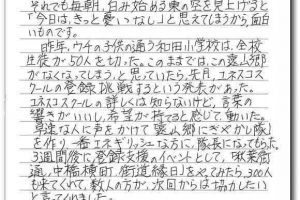 それでも毎朝、白み始める東の空を見上げると
「今日は、きっと愛いなし」と思えてしまうから、面白
いものです。
昨年、ウチの子供の通う和田小学校は、全校
生徒が50人を切った。このままでは、この裏山郷
がなくなってしまう、と思っていたら、先月、ユネスコス
クールの登録に挑戦するという発表があった。
ユネスコスクールの詳しくは知らないけど、言葉の
響きがいいし、希望が持てると感じて、動いた。
早速な人に声をかけて「裏山郷にぎやかし隊」
を作り一番エネルギッシュな方に、隊長になってもらふ。
3週間後に、登録支援のイベントとして、「秋葉街
道、中橋横町、街道縁日」をやってみたら、300人
も来てくれて、数人の方が、次回からは協力したい
と言ってくれました。